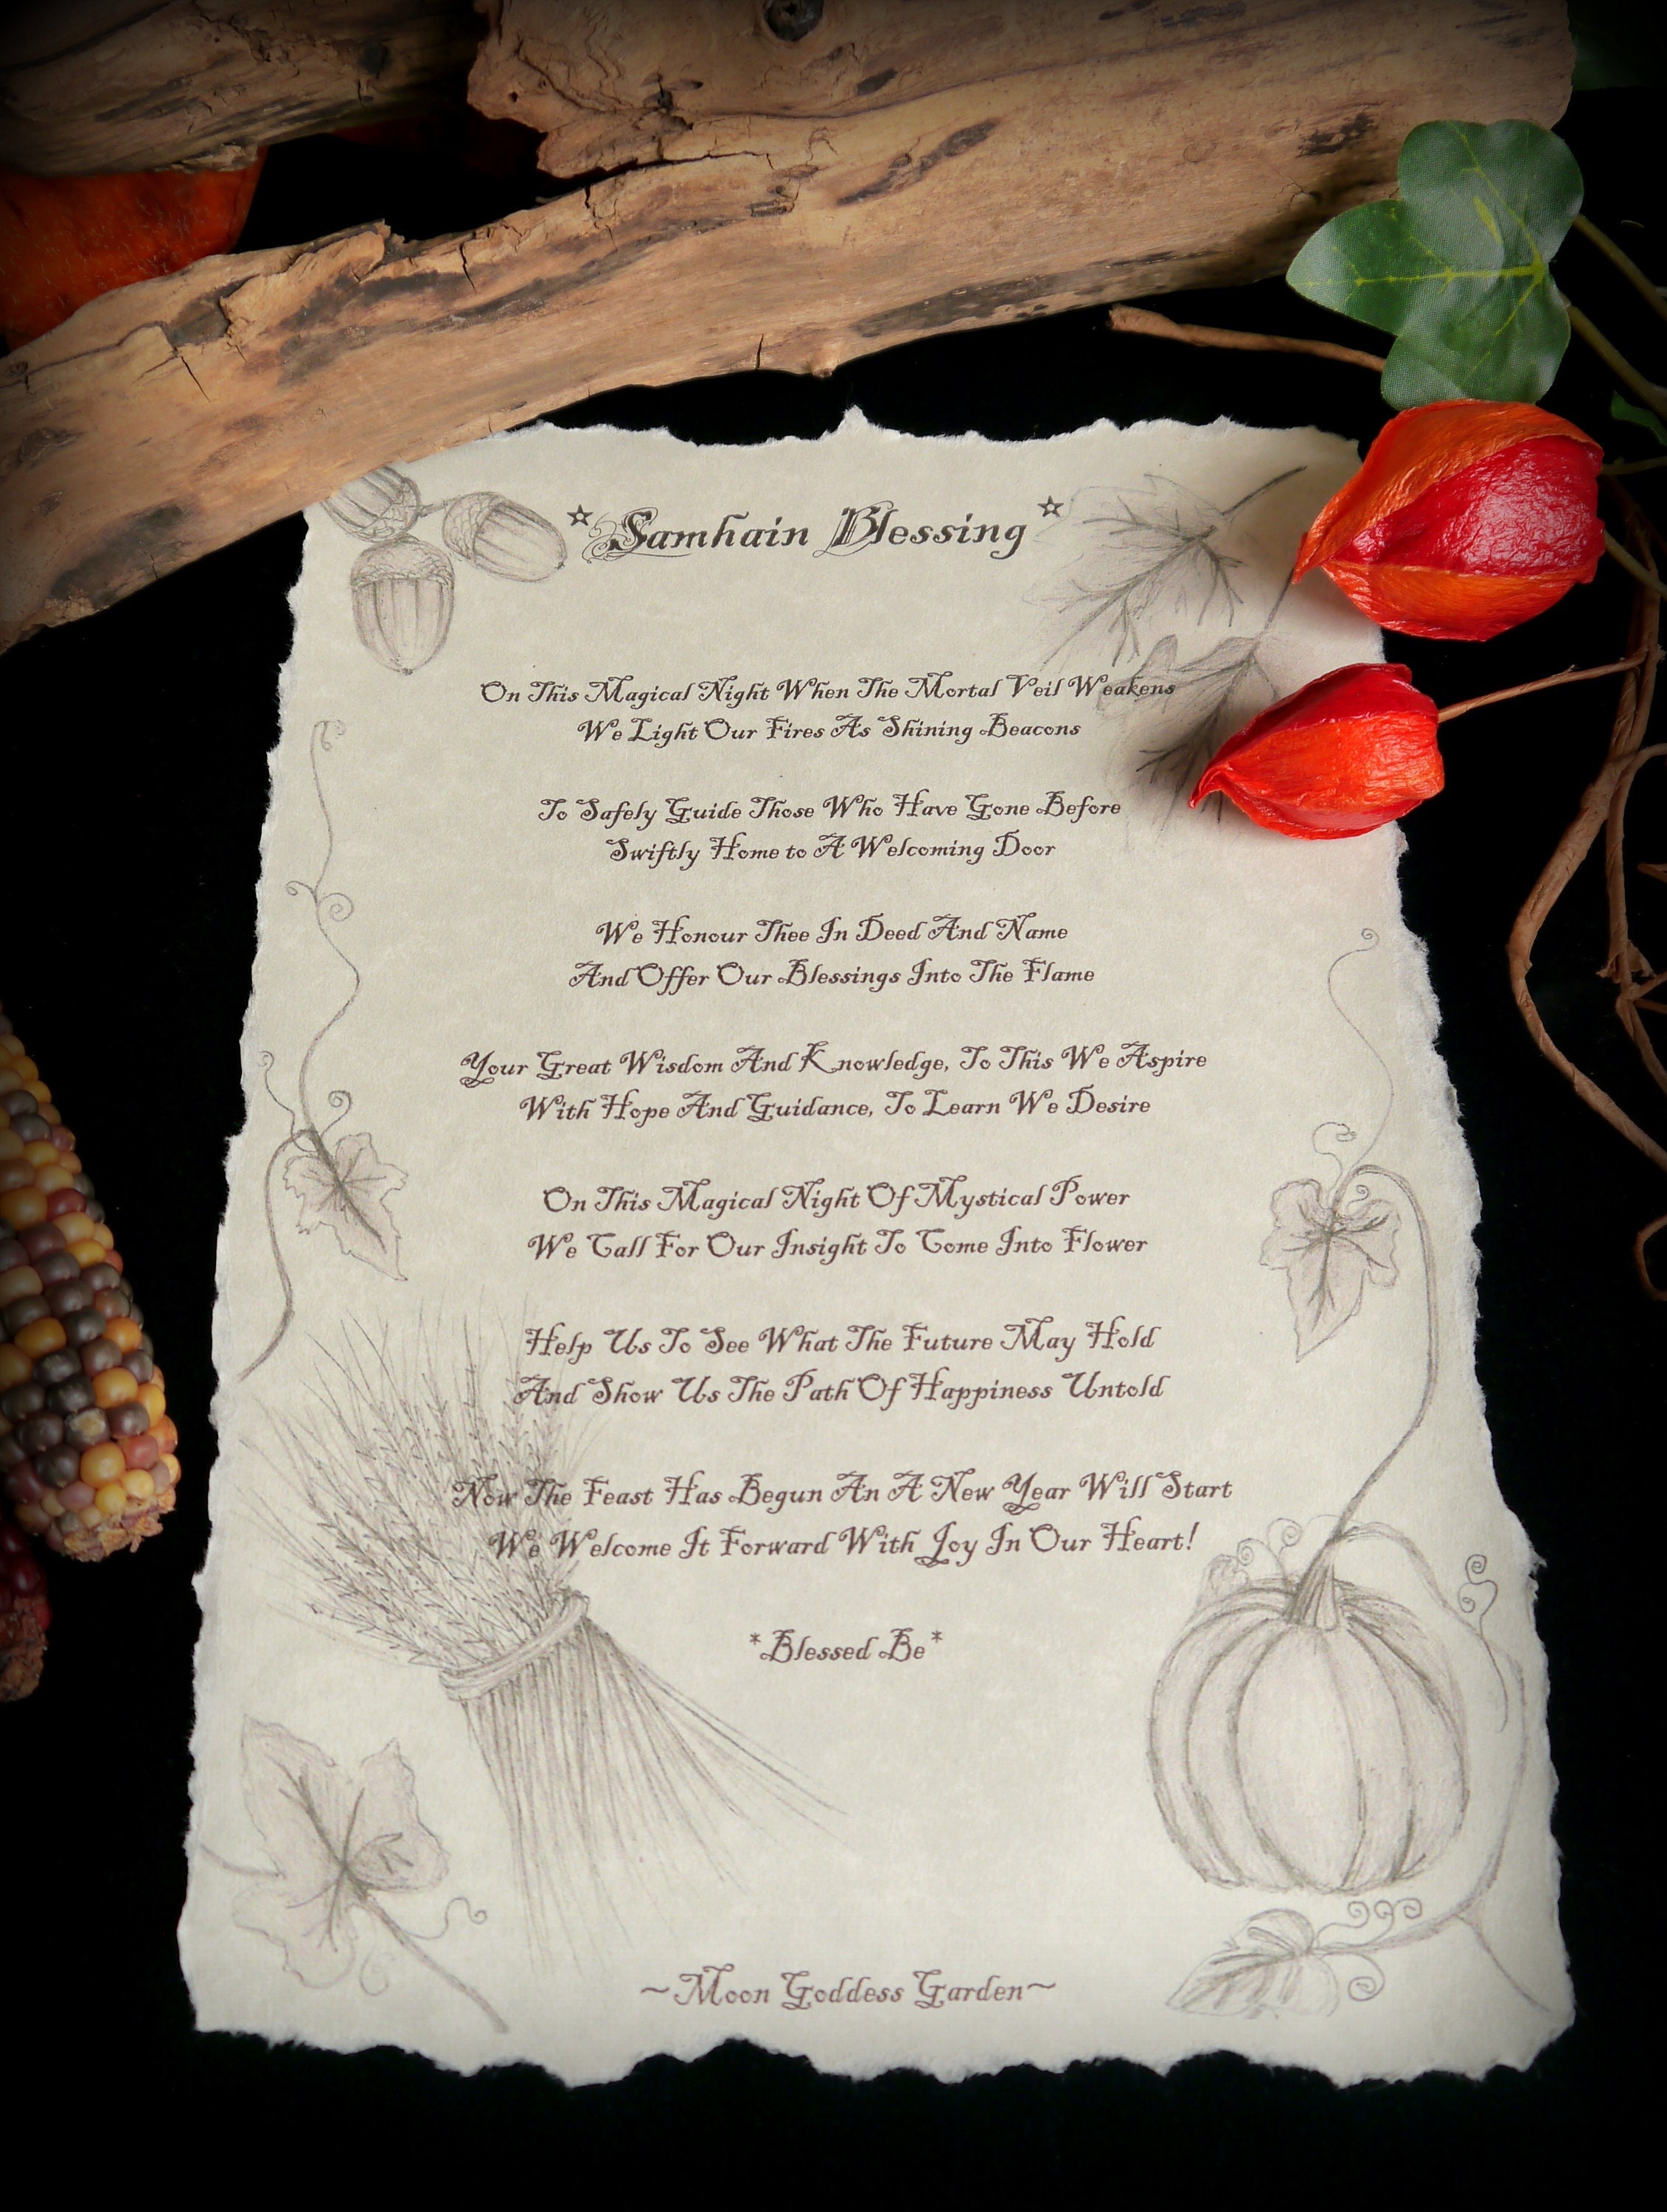 ☆Samhain Blessing☆
On This Magical Night When The Mortal Veil Weakens
We Light Our Fires As Shining Beacons
To Safely Guide Those Who Have Gone Before
Swiftly Home to A Welcoming Door
We Honour Thee In Deed And Name
And Offer Our Blessings Into The Flame
Your Great Wisdom And Knowledge, To This We Aspire
With Hope And Guidance, To Learn We Desire
On This Magical Night Of Mystical Power
We Call For Our Insight To Come Into Flower
Help Us To See What The Future May Hold
And Show Us The Path Of Happiness Untold
Now The Feast Has Begun An A New Year Will Start
We Welcome It Forward With Joy In Our Heart!
*Blessed Be*
~Moon Goddess Garden~